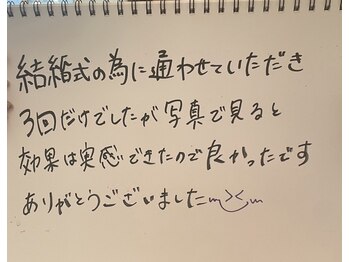 結婚式の為に通わせていただき
3回だけでしたが写真で見ると
効果は実感できたので良かったです
ありがとうございました